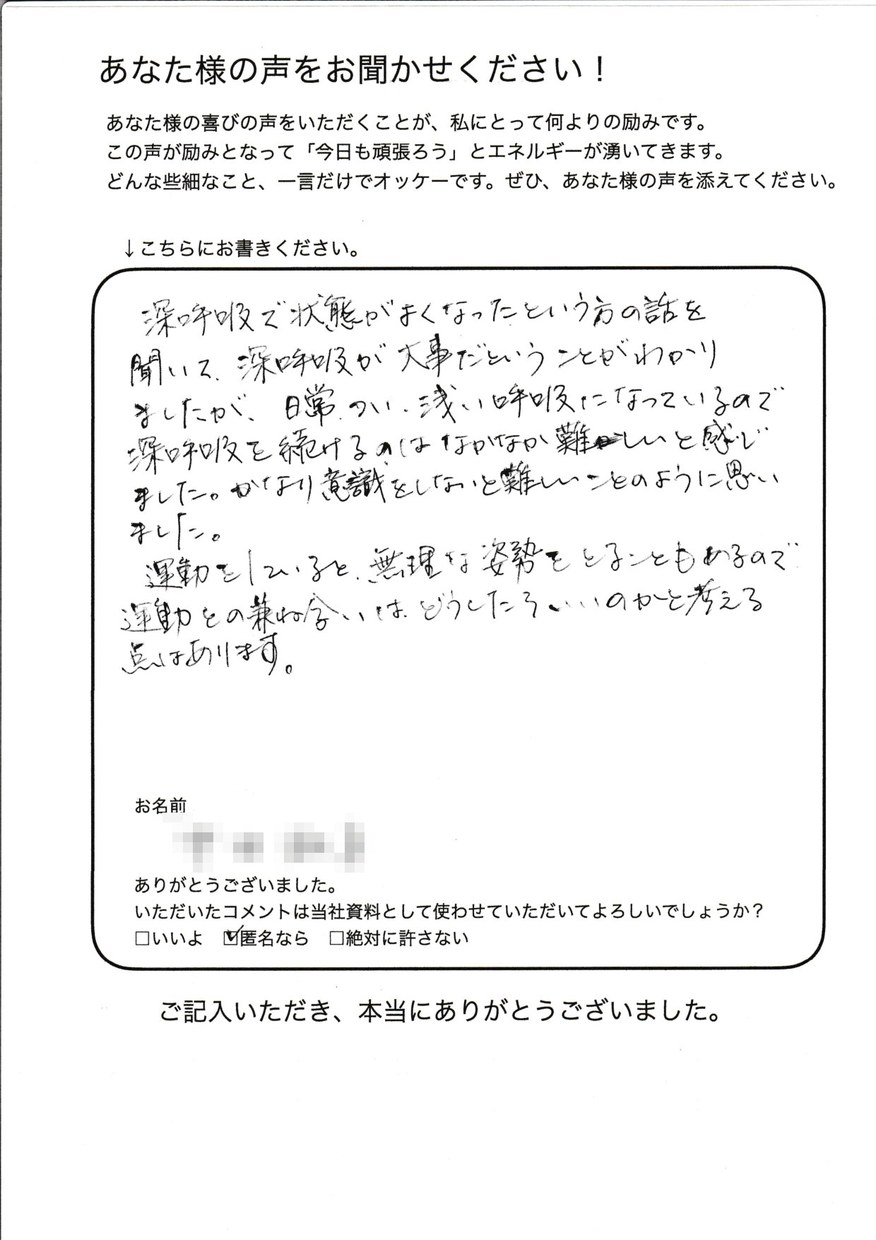 あなた様の声をお聞かせください！
あなた様の喜びの声をいただくことが、私にとって何よりの励みです。
この声が励みとなって「今日も頑張ろう」とエネルギーが湧いてきます。
どんな些細なこと、一言だけでオッケーです。ぜひ、あなた様の声を添えてください。
↓こちらにお書きください。
深呼吸で状態がよくなったという方の話を
聞いて、深呼吸が大事だということがわかり
ましたが、日常、つい、浅い呼吸になっているので
深呼吸を続けるのはなかなか難しいと感じ
ました。かなり意識をしないと難しいことのように思い
ました。
運動をしていると、無理な姿勢をとることもあるので
運動との兼ね合いは、どうしたらいいのかと考える
点はあります。
お名前
ありがとうございました。
いただいたコメントは当社資料として使わせていただいてよろしいでしょうか？
□いいよ ☑匿名なら □絶対に許さない
ご記入いただき、本当にありがとうございました。